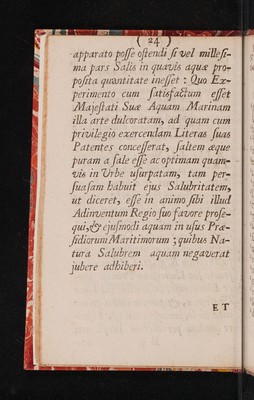 ( 24 )
apparato poſſe oſtendi ſi vel milleſi-
ma pars Salis in quavis aquæ pro-
poſita quantitate ineſſet : Quo Ex-
perimento cum ſatisfactum eſſet
Majeſtati Suæ Aquam Marinam
illa arte dulcoratam, ad quam cum
privilegio exercendam Literas ſuas
Patentes conceſſerat, ſaltem æque
puram a ſale eſſe ac optimam quam-
vis in Urbe uſurpatam, tam per-
ſuaſam habuit ejus Salubritatem,
ut diceret, eſſe in animo ſibi illud
Adinventum Regio ſuo favore proſe-
qui, & ejuſmodi aquam in uſus Præ-
ſidiorum Maritimorum ; quibus Na-
tura Salubrem aquam negaverat
jubere adhiberi.
ET